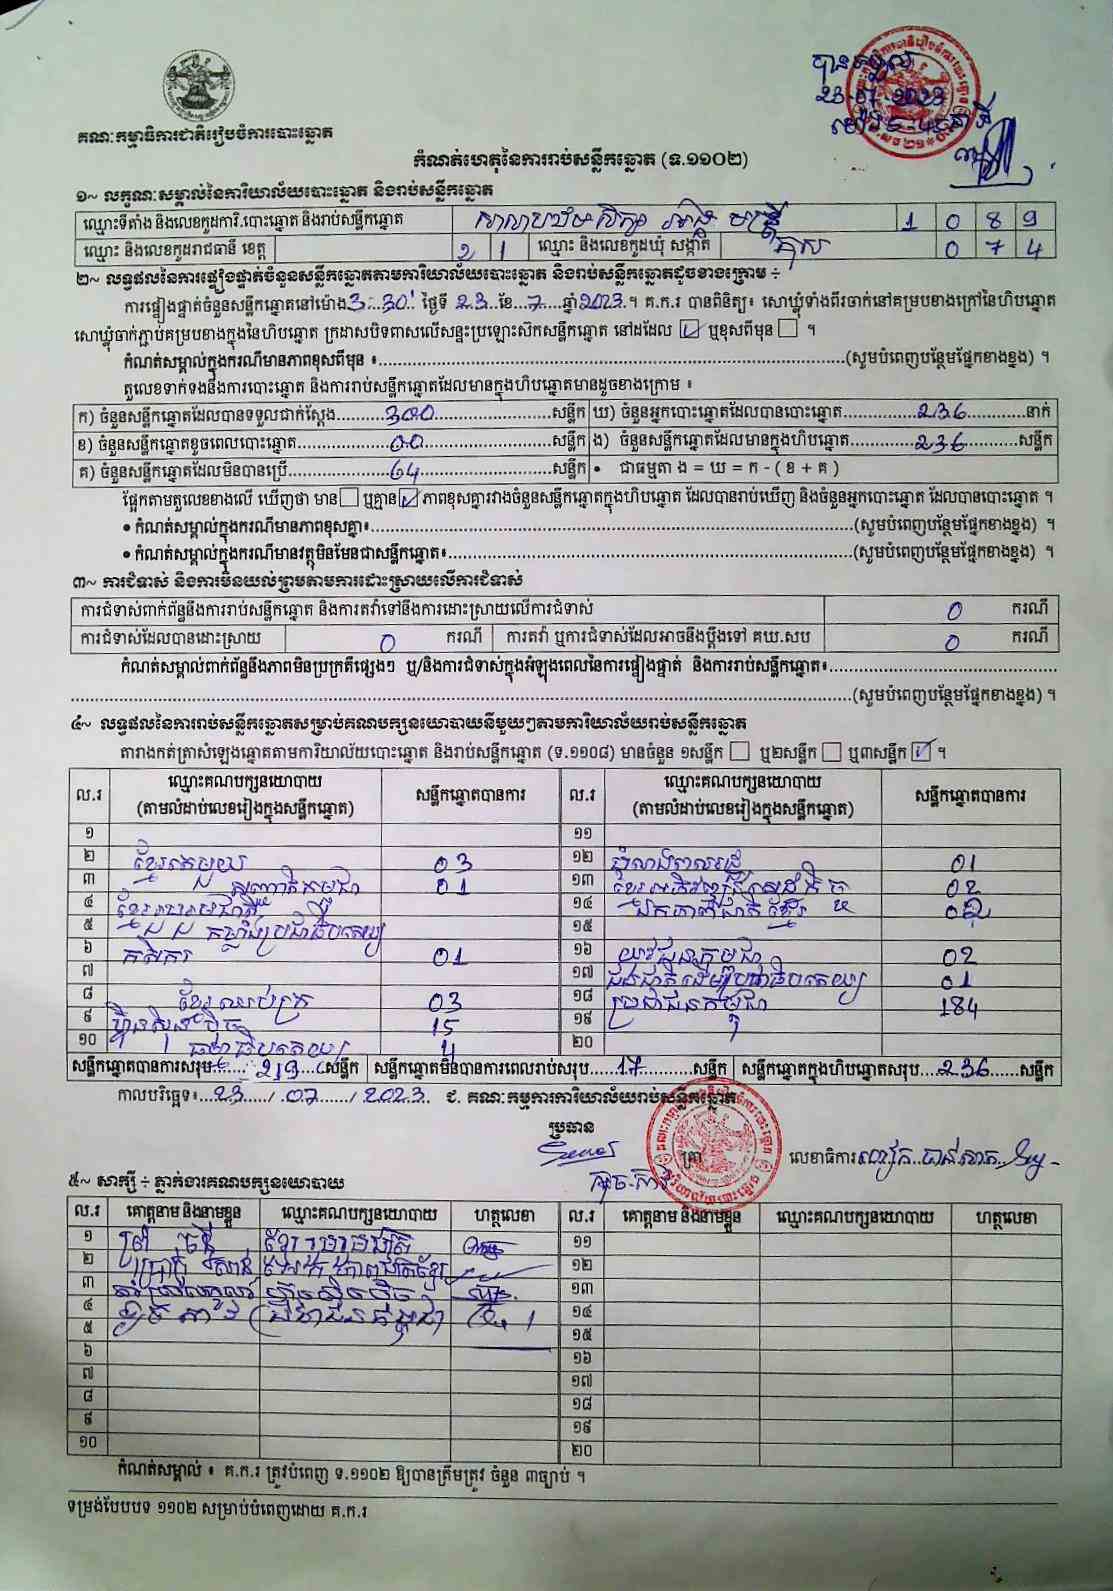 គណៈកម្មាធិការជាតិរៀបចំការបោះឆ្នោត
បានទទួល
23-07-2023
កំណត់ហេតុនៃការរាប់សន្លឹកឆ្នោត (ទ.១១០២)
១~ លក្ខណៈសម្គាល់នៃការិយាល័យបោះឆ្នោត និងរាប់សន្លឹកឆ្នោត
ឈ្មោះទីតាំង និងលេខកូដការិ.បោះឆ្នោត និងរាប់សន្លឹកឆ្នោត សាលាបឋមសិក្សា 1 0 8 9
ឈ្មោះ និងលេខកូដរាជធានី ខេត្ត 2 1 ឈ្មោះ និងលេខកូដឃុំ សង្កាត់ 0 7 4
២~ លទ្ធផលនៃការផ្ទៀងផ្ទាត់ចំនួនសន្លឹកឆ្នោតតាមការិយាល័យបោះឆ្នោត និងរាប់សន្លឹកឆ្នោតដូចខាងក្រោម ÷
ការផ្ទៀងផ្ទាត់ចំនួនសន្លឹកឆ្នោតនៅម៉ោង 3:30' ថ្ងៃទី 23 ខែ 7 ឆ្នាំ 2023 ។ គ.ក.រ បានពិនិត្យ៖ សោឃ្លុំទាំងពីរចាក់នៅគម្របខាងក្រៅនៃហិបឆ្នោត
សោឃ្លុំចាក់ភ្ជាប់គម្របខាងក្នុងនៃហិបឆ្នោត ក្រដាសបិទពាសលើសន្ទះប្រឡោះសិកសន្លឹកឆ្នោត នៅដដែល ☑ ឬខុសពីមុន ☐ ។
កំណត់សម្គាល់ក្នុងករណីមានភាពខុសពីមុន ៖ (សូមបំពេញបន្ថែមផ្នែកខាងខ្នង) ។
តួលេខទាក់ទងនឹងការបោះឆ្នោត និងការរាប់សន្លឹកឆ្នោតដែលមានក្នុងហិបឆ្នោតមានដូចខាងក្រោម ៖
ក) ចំនួនសន្លឹកឆ្នោតដែលបានទទួលជាក់ស្តែង 300 សន្លឹក ឃ) ចំនួនអ្នកបោះឆ្នោតដែលបានបោះឆ្នោត 236 នាក់
ខ) ចំនួនសន្លឹកឆ្នោតខូចពេលបោះឆ្នោត 00 សន្លឹក ង) ចំនួនសន្លឹកឆ្នោតដែលមានក្នុងហិបឆ្នោត 236 សន្លឹក
គ) ចំនួនសន្លឹកឆ្នោតដែលមិនបានប្រើ 64 សន្លឹក • ជាធម្មតា ង = ឃ = ក - ( ខ + គ )
ផ្អែកតាមតួលេខខាងលើ ឃើញថា មាន ☐ ឬគ្មាន ☑ ភាពខុសគ្នារវាងចំនួនសន្លឹកឆ្នោតក្នុងហិបឆ្នោត ដែលបានរាប់ឃើញ និងចំនួនអ្នកបោះឆ្នោត ដែលបានបោះឆ្នោត ។
• កំណត់សម្គាល់ក្នុងករណីមានភាពខុសគ្នា៖ (សូមបំពេញបន្ថែមផ្នែកខាងខ្នង) ។
• កំណត់សម្គាល់ក្នុងករណីមានវត្ថុមិនមែនជាសន្លឹកឆ្នោត៖ (សូមបំពេញបន្ថែមផ្នែកខាងខ្នង) ។
៣~ ការជំទាស់ និងការមិនយល់ព្រមតាមការដោះស្រាយលើការជំទាស់
ការជំទាស់ពាក់ព័ន្ធនឹងការរាប់សន្លឹកឆ្នោត និងការតវ៉ាទៅនឹងការដោះស្រាយលើការជំទាស់ 0 ករណី
ការជំទាស់ដែលបានដោះស្រាយ 0 ករណី ការតវ៉ា ឬការជំទាស់ដែលអាចនឹងប្តឹងទៅ គឃ.សប 0 ករណី
កំណត់សម្គាល់ពាក់ព័ន្ធនឹងភាពមិនប្រក្រតីផ្សេងៗ ឬ/និងការជំទាស់ក្នុងអំឡុងពេលនៃការផ្ទៀងផ្ទាត់ និងការរាប់សន្លឹកឆ្នោត៖
(សូមបំពេញបន្ថែមផ្នែកខាងខ្នង) ។
៤~ លទ្ធផលនៃការរាប់សន្លឹកឆ្នោតសម្រាប់គណបក្សនយោបាយនីមួយៗតាមការិយាល័យរាប់សន្លឹកឆ្នោត
តារាងកត់ត្រាសំឡេងឆ្នោតតាមការិយាល័យបោះឆ្នោត និងរាប់សន្លឹកឆ្នោត (ទ.១១០៨) មានចំនួន ១សន្លឹក ☐ ឬ២សន្លឹក ☐ ឬ៣សន្លឹក ☑ ។
ល.រ ឈ្មោះគណបក្សនយោបាយ (តាមលំដាប់លេខរៀងក្នុងសន្លឹកឆ្នោត) សន្លឹកឆ្នោតបានការ ល.រ ឈ្មោះគណបក្សនយោបាយ (តាមលំដាប់លេខរៀងក្នុងសន្លឹកឆ្នោត) សន្លឹកឆ្នោតបានការ
១ ១១
២ ខ្មែរតែមួយ 03 ១២ 01
៣ សញ្ជាតិកម្ពុជា 01 ១៣ ខ្មែរអភិវឌ្ឍន៍សេដ្ឋកិច្ច 02
៤ ខ្មែររួបរួមជាតិ ១៤ ឯកភាពជាតិខ្មែរ
៥ កម្លាំងប្រជាធិបតេយ្យ ១៥
៦ កសិករ 01 ១៦ យុវជនកម្ពុជា 02
៧ ១៧ ជនជាតិដើមប្រជាធិបតេយ្យ 01
៨ ខ្មែរឈប់ក្រ 03 ១៨ ប្រជាជនកម្ពុជា 184
៩ ហ៊្វុនស៊ិនប៉ិច 15 ១៩
១០ ធម្មាធិបតេយ្យ 4 ២០
សន្លឹកឆ្នោតបានការសរុប 219 សន្លឹក សន្លឹកឆ្នោតមិនបានការពេលរាប់សរុប 17 សន្លឹក សន្លឹកឆ្នោតក្នុងហិបឆ្នោតសរុប 236 សន្លឹក
កាលបរិច្ឆេទ៖ 23 / 07 / 2023 ជ. គណៈកម្មការការិយាល័យរាប់សន្លឹកឆ្នោត
ប្រធាន
ត្រា លេខាធិការ
៥~ សាក្សី ÷ ភ្នាក់ងារគណបក្សនយោបាយ
ល.រ គោត្តនាម និងនាមខ្លួន ឈ្មោះគណបក្សនយោបាយ ហត្ថលេខា ល.រ គោត្តនាម និងនាមខ្លួន ឈ្មោះគណបក្សនយោបាយ ហត្ថលេខា
១ ខ្មែររួបរួមជាតិ ១១
២ ឯកភាពជាតិខ្មែរ ១២
៣ ហ៊្វុនស៊ិនប៉ិច ១៣
៤ ប្រជាជនកម្ពុជា ១៤
៥ ១៥
៦ ១៦
៧ ១៧
៨ ១៨
៩ ១៩
១០ ២០
កំណត់សម្គាល់ ៖ គ.ក.រ ត្រូវបំពេញ ទ.១១០២ ឱ្យបានត្រឹមត្រូវ ចំនួន ៣ច្បាប់ ។
ទម្រង់បែបបទ ១១០២ សម្រាប់បំពេញដោយ គ.ក.រ